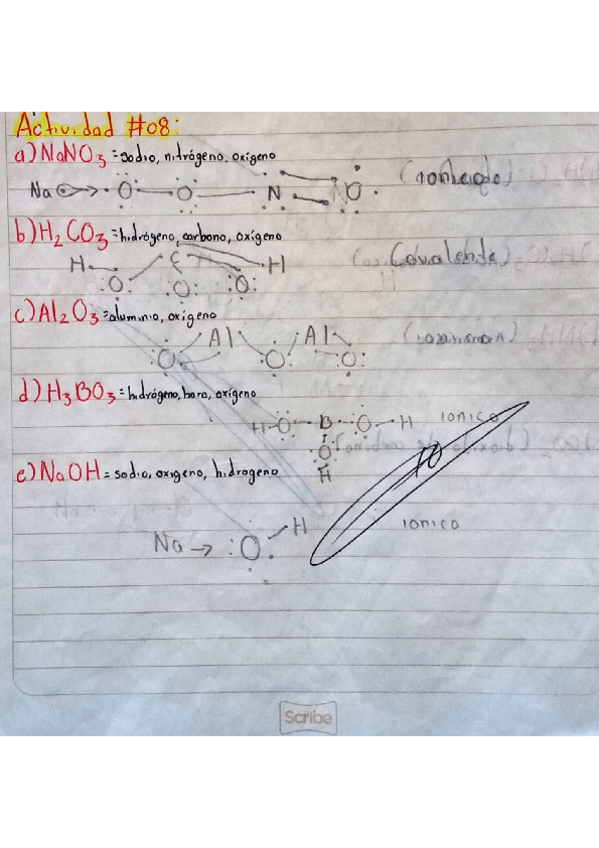 Actividad #08:
a) NaNO3 = sodio, nitrógeno, oxígeno
Na O O N O
b) H2CO3 = hidrógeno, carbono, oxígeno
H C H
O O O
c) Al2O3 = aluminio, oxígeno
Al Al
O O O
d) H3BO3 = hidrógeno, boro, oxígeno
H-O-B-O-H ionico
O
H
e) NaOH = sodio, oxigeno, hidrogeno
H ionico
Na → O
Scribe